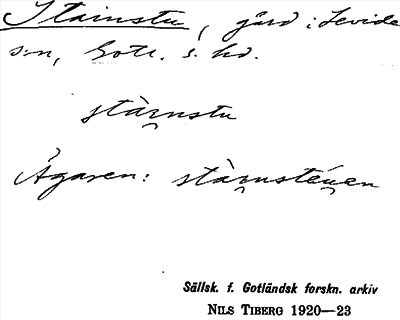 Stainstu, gård i Levide
s:n, Gotl. s. hd.
stàrnstu
Ägaren: stàrnstéuen
Sällsk. f. Gotländsk forskn. arkiv
NILS TIBERG 1920—23